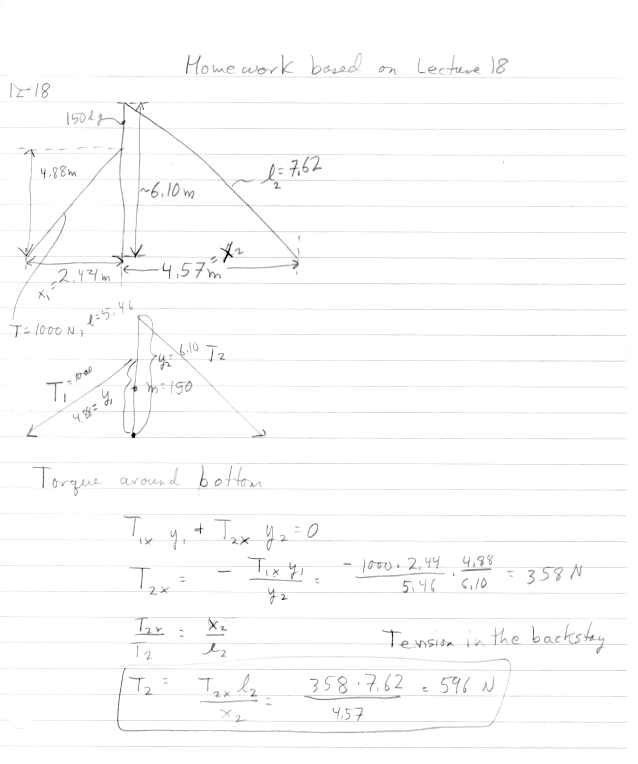 Homework based on Lecture 18
12-18
150kg
4.88m
~6.10 m
l₂ = 7.62
x₁ = 2.44 m
4.57m = x₂
T = 1000 N, l = 5.46
T₁ = 1000
4.88 = y₁
y₂ = 6.10
T₂
m = 150
Torque around bottom
T₁ₓ y₁ + T₂ₓ y₂ = 0
T₂ₓ = - T₁ₓ y₁ / y₂ = -1000 · 2.44 / 5.46 · 4.88 / 6.10 = 358 N
T₂ₓ / T₂ = x₂ / l₂
Tension in the backstay
T₂ = T₂ₓ l₂ / x₂ = 358 · 7.62 / 4.57 = 596 N